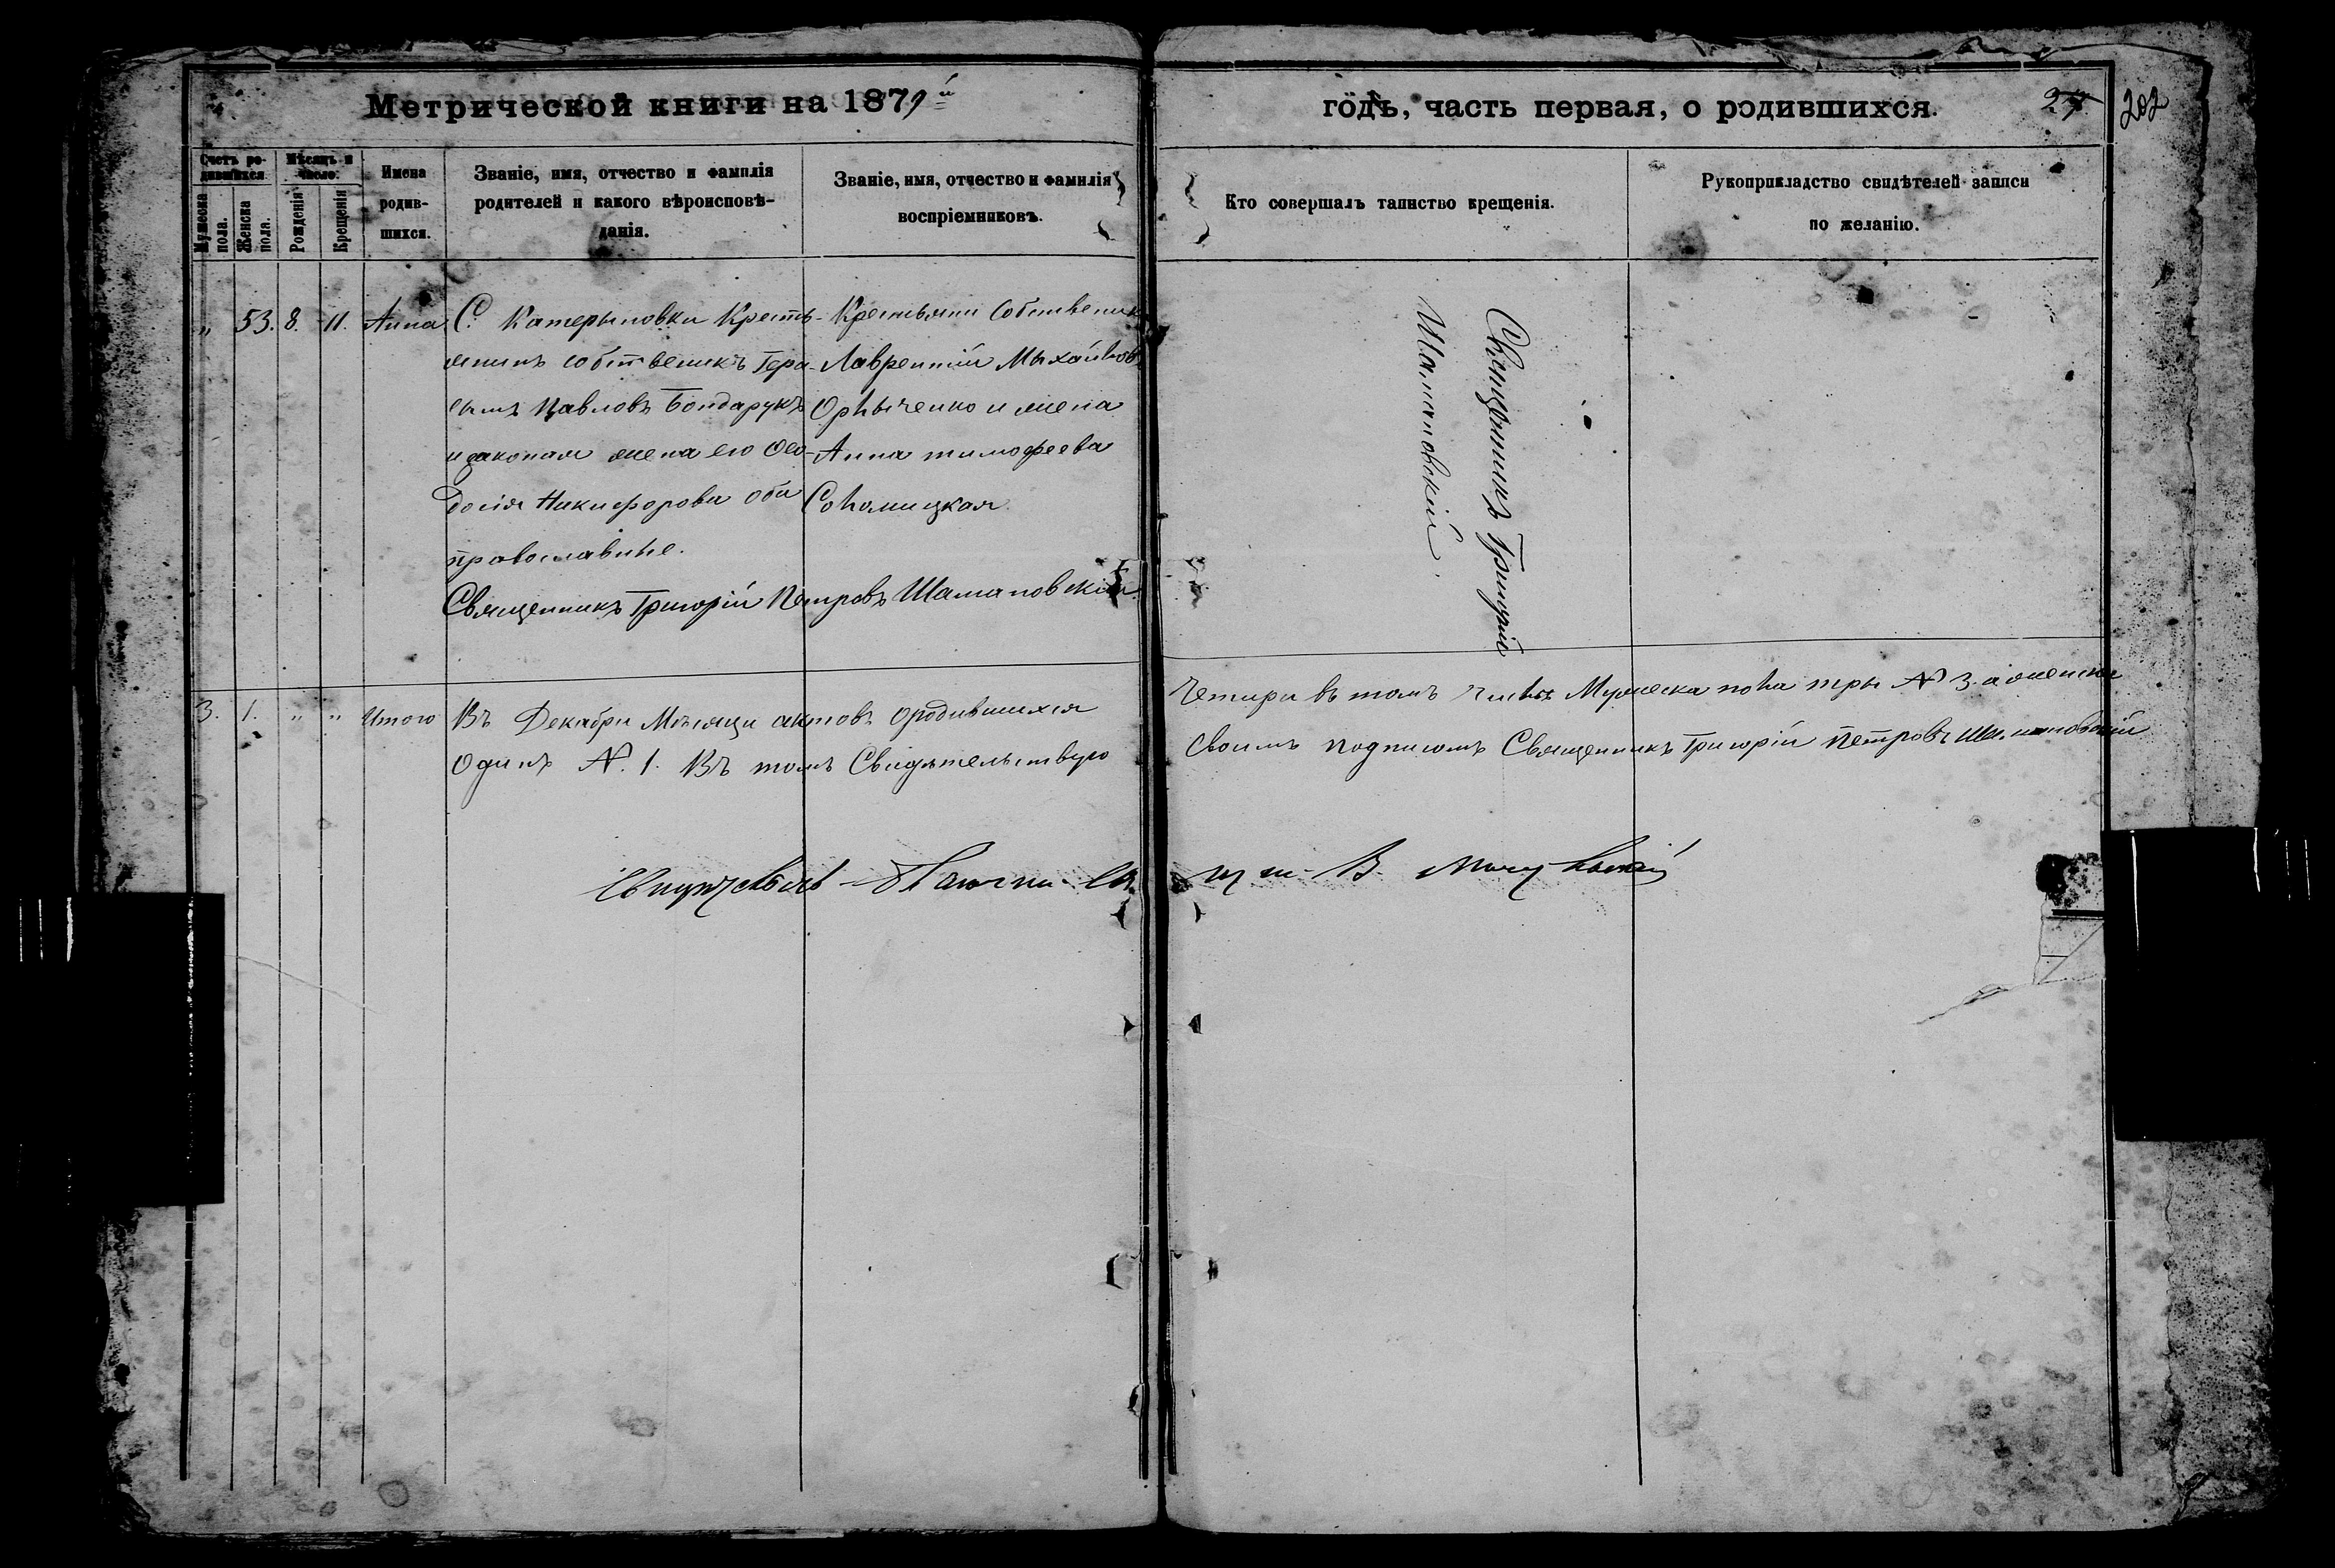 Метрической книги на 1879й
годъ, часть первая, о родившихся.
27
202
Счетъ ро-
дившихся
Мѣсяцъ и
число.
Мужеска
пола.
Женска
пола.
Рожденія
Крещенія
Имена
родив-
шихся.
Званіе, имя, отчество и фамилія
родителей и какого вѣроисповѣ-
данія.
Званіе, имя, отчество и фамилія
воспріемниковъ.
Кто совершалъ таинство крещенія.
Рукоприкладство свидѣтелей записи
по желанію.
„ 53. 8. 11. Анна
С. Катерыновки Кресть-
янинъ собственикъ Гера-
симъ Павловъ Бондарукъ
и законая жена его Ѳео-
досія Никифорова оба
православніе.
Священникъ Григорій Петровъ Шамановскій
Крестьяни Собственик
Лаврентій Мыхайлов
и жена
Анна тимофеева
Священникъ Григорій
Шамановскій.
3. 1. „ „ Итого
Въ Декабри Мѣсяци актовъ о родившихся
Четири въ томъ числѣ Мужеска пола тры № 3. а женска
Одинъ №. 1. Въ томъ Свидѣтельствую
Своимъ подписомъ Священникъ Григорій Петровъ Шамановскій